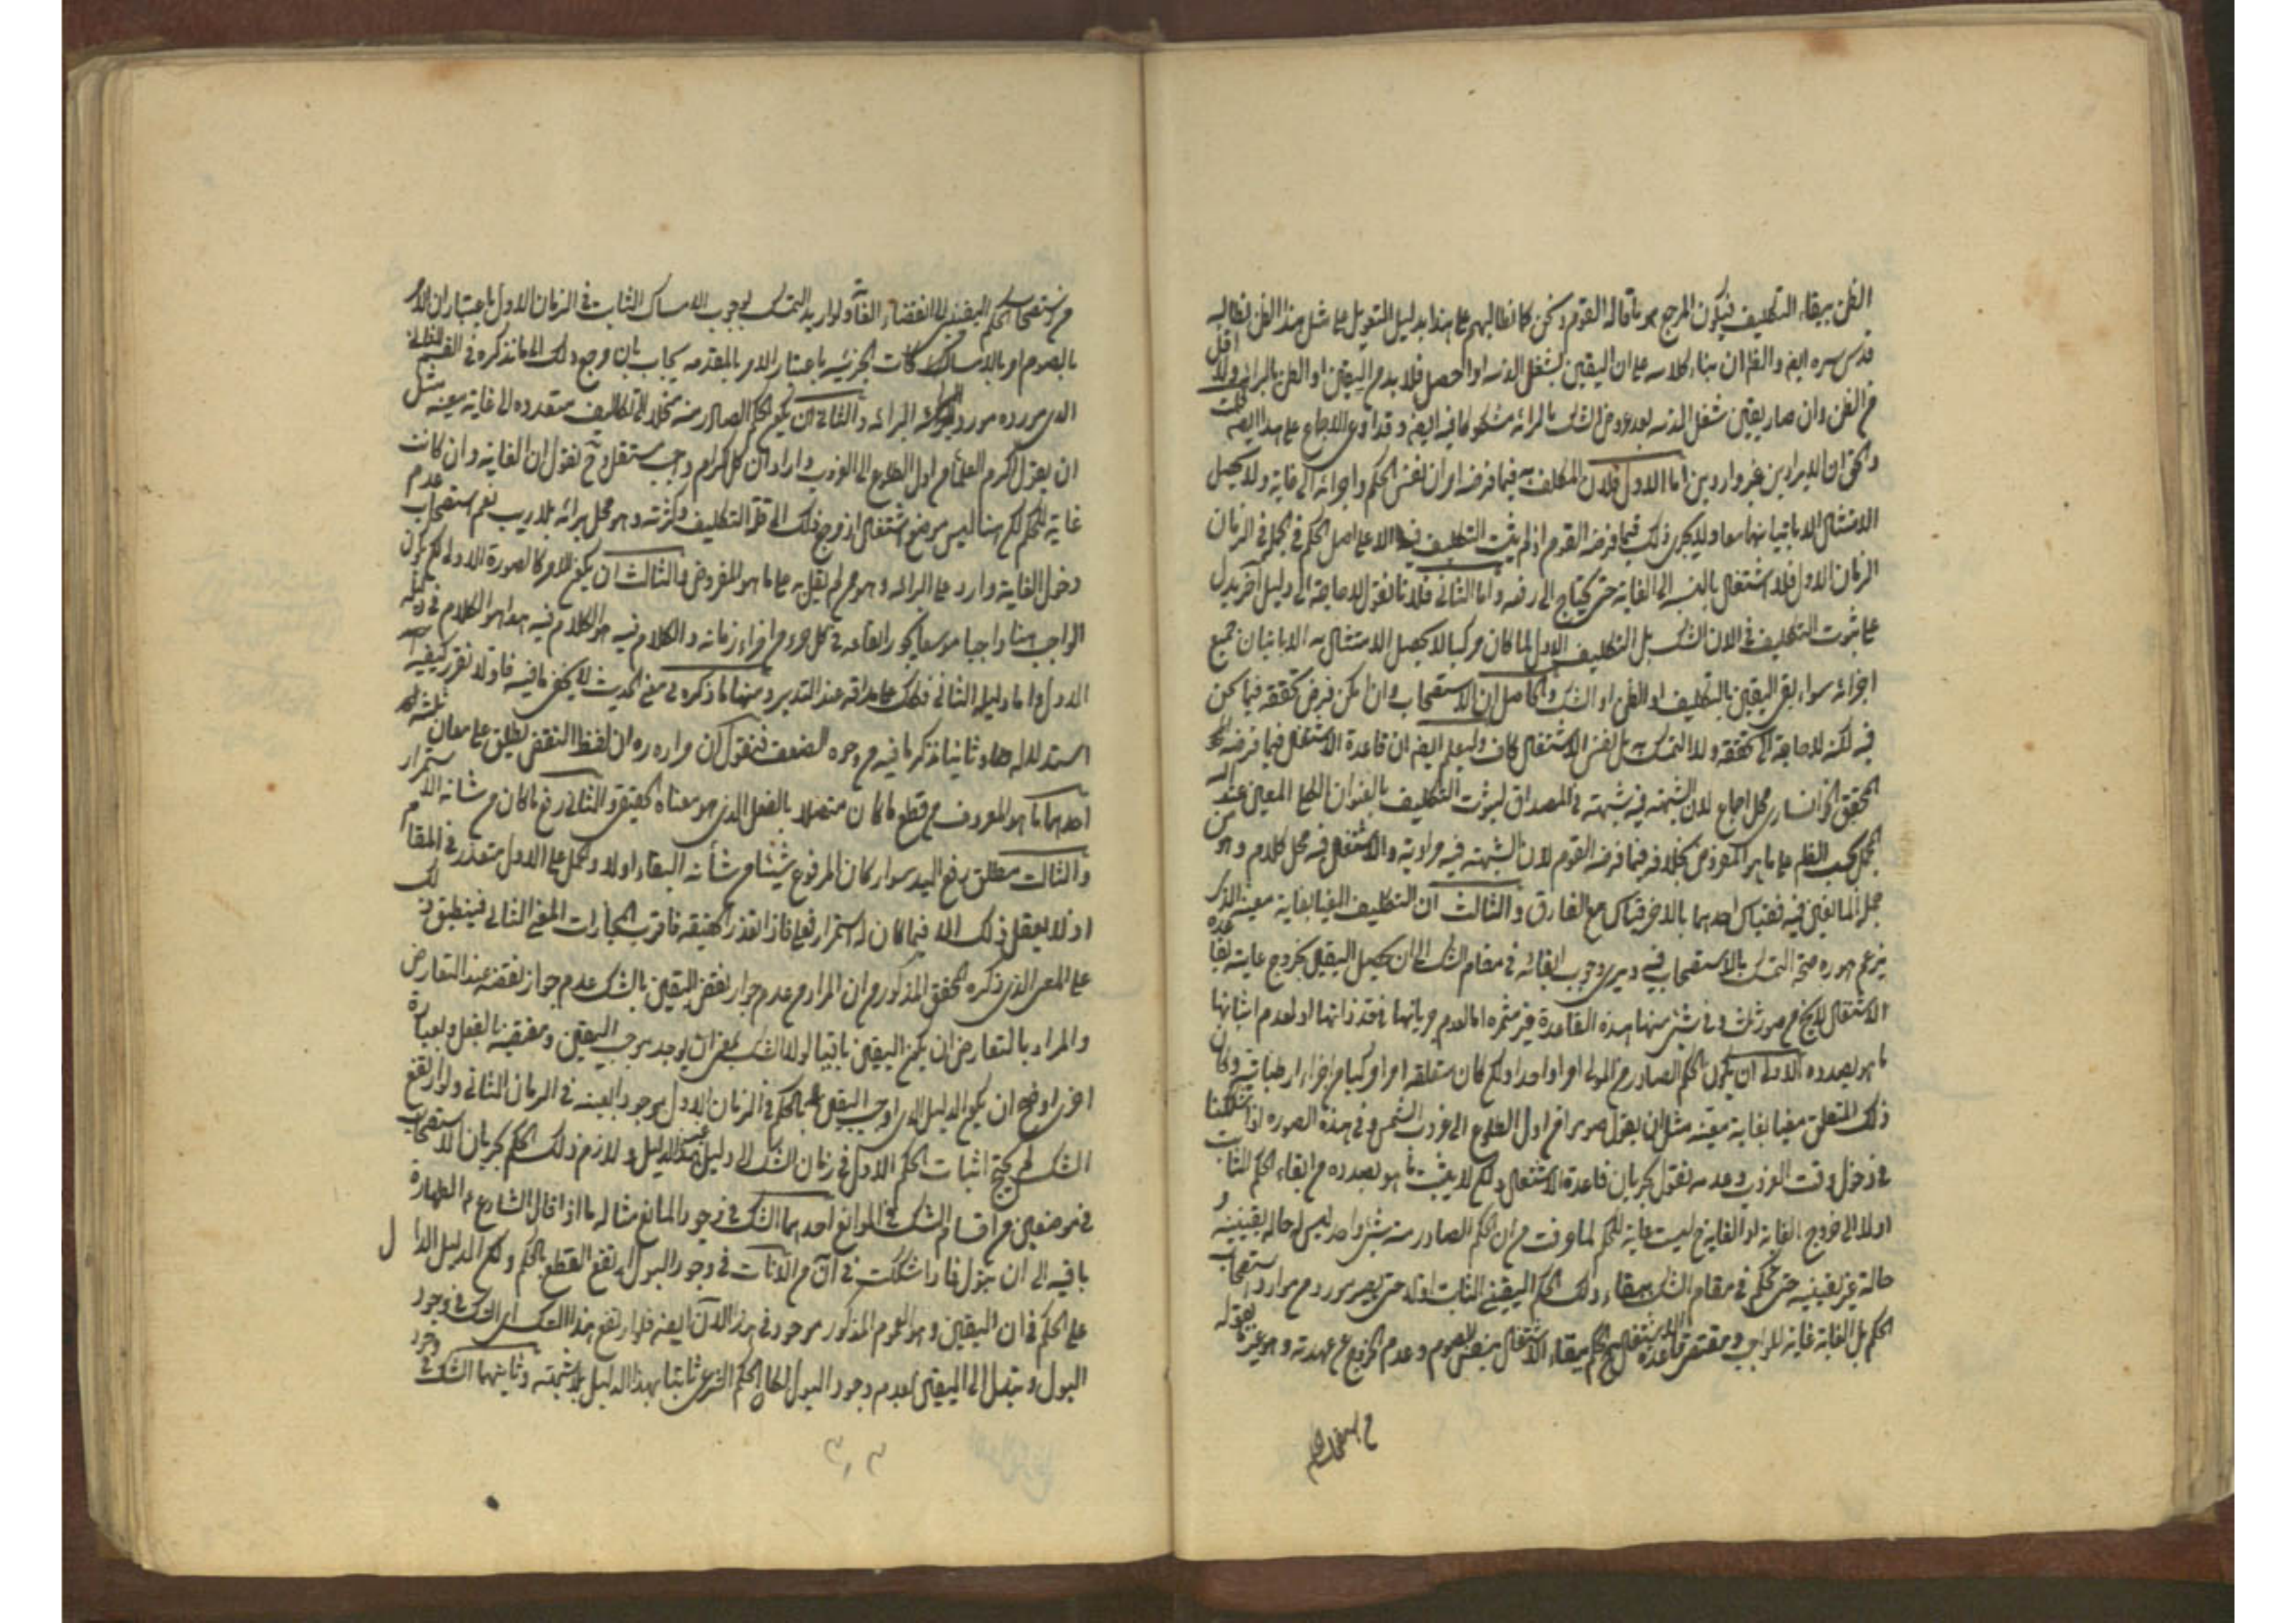 الظن ببقاء التكليف فيكون المرجع هو ما قاله القوم ونحن كما نطالبهم على هذا بدليل التعويل على مثل هذا الظن نطالبه
قدس سره ايضا والظ ان بناء كلامه على ان اليقين بشغل الذمه لو حصل فلا بد من اليقين او الظن بالبرائه ولا اقل
من الظن وان صار يقين شغل الذمه بعد عروض الشك بالبرائه مشكوكا فيه ايضا وقد ادعى الاجماع على هذا ايضا قلت
والحق ان الايرادين غير واردين اما الاول فلان المكلف به فيما فرضه امران نفس الحكم واجرائه الى غاية ولا يحصل
الامتثال الا باتيانهما معا ولا يجرى ذلك فيما فرضه القوم اذ لم يثبت التكليف فيه الا على اصل الحكم في الجملة في الزمان
الزمان الاول فلا اشتغال بالنسبه الى الغاية حتى يحتاج الى رفعه واما الثانى فلانا نقول لا حاجة الى دليل آخر يدل
على ثبوت التكليف في الان الشك بل التكليف الاول لما كان مركبا لا يحصل الامتثال به الا باتيان جميع
اجزائه سواء بقى اليقين بالتكليف او الظن او الشك والحاصل ان الاستصحاب وان امكن فرض تحققه فيما نحن
فيه لكنه لا حاجة الى تحققه ولا التمسك به بل نفس الاشتغال كاف وليعلم ايضا ان قاعدة الاشتغال فيما فرضه
المحقق الخوانسارى محل اجماع لان الشبهة فيه شبهة في المصداق لثبوت التكليف بالعنوان الكلى المعين عند
المجمل بحسب الظ على ما هو المفروض بخلافه فيما فرضه القوم لان الشبهة فيه مرادية والاشتغال فيه محل كلام وهو من
جملة المانعين فيه فقياس احدهما بالاخر قياس مع الفارق والثالث ان التكليف المغيا بغاية معينة الذى
يزعم هو ره صحة التمسك بالاستصحاب فيه ويرى وجوب ابقائه في مقام الشك الى ان يحصل اليقين بخروج غايته لقاعدة
الاشتغال لا يخ من صور ثلث وفى شئ منها هذه القاعدة غير مثمره اما لعدم جريانها في حد ذاتها او لعدم اثباتها
ما هو بصدده الاولى ان يكون الحكم الصادر من المولى امرا واحدا ولكن كان متعلقه امرا مركبا من اجزاء ارتباطية وكان
ذلك المتعلق مغيا بغاية معينه مثل ان يقول صوموا من اول الطلوع الى غروب الشمس وفى هذه الصوره اذا شككنا
في دخول وقت الغروب وعدمه نقول بجريان قاعدة الاشتغال ولكن لا يثبت ما هو بصدده من ابقاء الحكم الثابت
اولا الى خروج الغاية اذ الغاية ح ليست غاية للحكم لما عرفت من ان الحكم الصادر منه شئ واحد ليس له حالة يقينية و
حالة غير يقينيه حتى يحكم في مقام الشك ببقاء ذلك الحكم اليقينى الثابت اولا حتى يصير مورد من موارد استصحاب
الحكم بل الغاية غاية للواجب ومقتضى قاعدة الاشتغال الحكم ببقاء الاشتغال بنفس الصوم وعدم الخروج عن عهدته وهو غير ما يقوله
من استصحاب الحكم
من استصحاب الحكم اليقينى الى انقضاء الغاية ولو اريد التمسك بوجوب الامساك الثابت في الزمان الاول باعتبار ان الامر
بالصوم امر بالامساكات الجزئيه باعتبار الامر بالمقدمه يجاب بان مرجع ذلك الى ما نذكره في القسم الثانى
الذى مورده مورد البرائه والثانى ان يكون الحكم الصادر منه منحلا الى تكاليف متعدده الى غاية معينه مثل
ان يقول اكرم العلماء من اول الطلوع الى الغروب واراد ان كل اكرام واجب مستقل وح نقول ان الغاية وان كانت
غاية للحكم لكن هنا ليس موضع اشتغال اذ مرجع ذلك الى قلة التكليف وكثرته وهو محل برائه بلا ريب نعم استصحاب عدم
دخول الغاية وارد على البرائه وهو مم لم يقل به على ما هو المفروض والثالث ان يكون الامر كالصورة الاولى لكن يكون
الواجب هنا واجبا موسعا يجوز ايقاعه في كل جزء من اجزاء زمانه والكلام فيه هو الكلام فيه هذا هو الكلام في دليله
الاول واما دليله الثانى فذلك عند التدبر ومنها ما ذكره في معنى الحديث لا يخفى ما فيه فاولا نقرر كيفية
استدلاله بها وثانيا نذكر ما فيه من وجوه الضعف فنقول ان مراده ره ان لفظ النقض يطلق على معان ثلثه
احدها ما هو المعروف من قطع ما كان متصلا بالفعل الذى هو معناه الحقيقى والثانى رفع ما كان من شانه الاستمرار
والثالث مطلق رفع اليد سواء كان المرفوع شيئا من شأنه البقاء اولا والحمل على الاول متعذر في المقام
اذ لا يعقل ذلك الا فيما كان له استمرار فعلى فاذا تعذر الحقيقه فاقرب المجازات المعنى الثانى فينطبق ذلك
على المعنى الذى ذكره المحقق المذكور من ان المراد من عدم جواز نقض اليقين بالشك عدم جواز نقضه عند التعارض
والمراد بالتعارض ان يكون اليقين باقيا لولا الشك بمعنى ان يوجد موجب اليقين ومقتضيه بالفعل وبعبارة
اخرى اوضح ان يكون الدليل الذى اوجب اليقين بالحكم في الزمان الاول موجودا بعينه في الزمان الثانى ولو ارتفع
الشك لم يحتج اثبات الحكم الاول في زمان الشك الى دليل غير هذا الدليل ولازم ذلك الحكم بجريان الاستصحاب
في موضعين من اقسام الشك في الموانع احدهما الشك في وجود المانع مثاله ما اذا قال الشارع ان الطهارة
باقيه الى ان يبول فاذا شككت في آن من الآنات في وجود البول ارتفع القطع بالحكم ولكن الدليل الدال
على الحكم في ان اليقين وهو العموم المذكور موجود في هذا الآن ايضا فلو ارتفع هذا الشك اى الشك في وجود
البول وتبدل الى اليقين بعدم وجود البول لكان الحكم الشرعى ثابتا بهذا الدليل بلا شبهة وثانيهما الشك في وجود